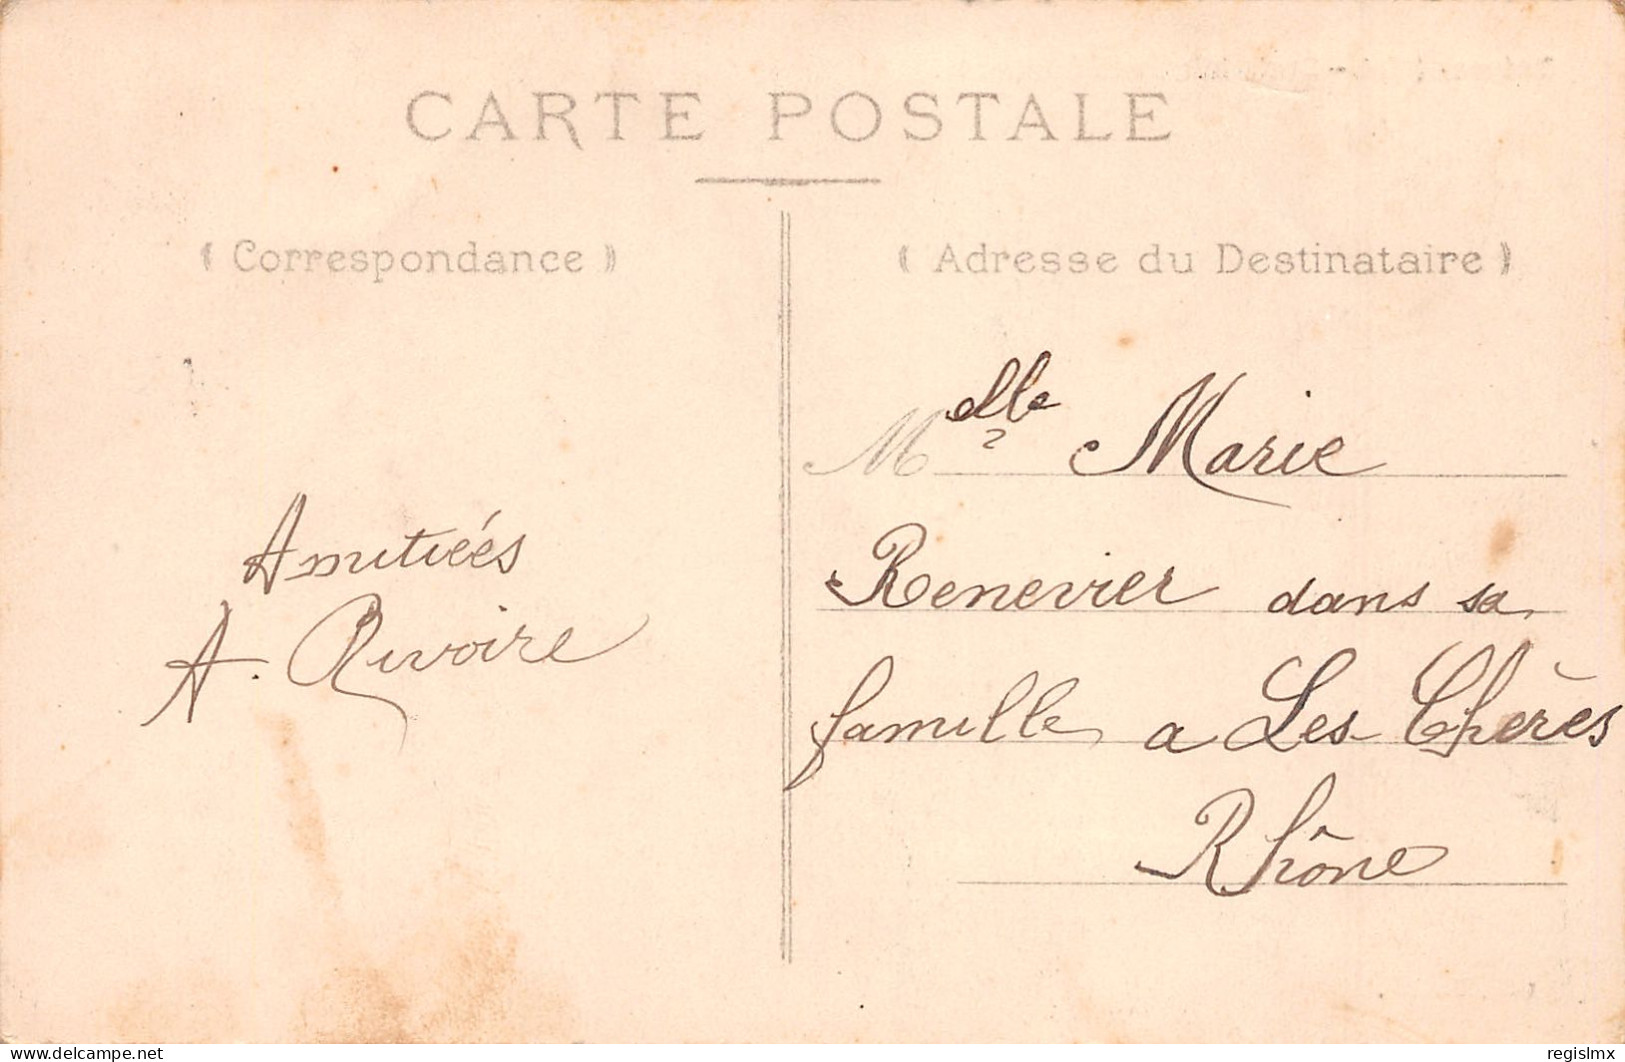 CARTE POSTALE
( Correspondance )
Amitiées
A. Rivoire
( Adresse du Destinataire )
Melle Marie
Renevier dans sa
famille a Les Chères
Rhône
delcampe.net
regislmx